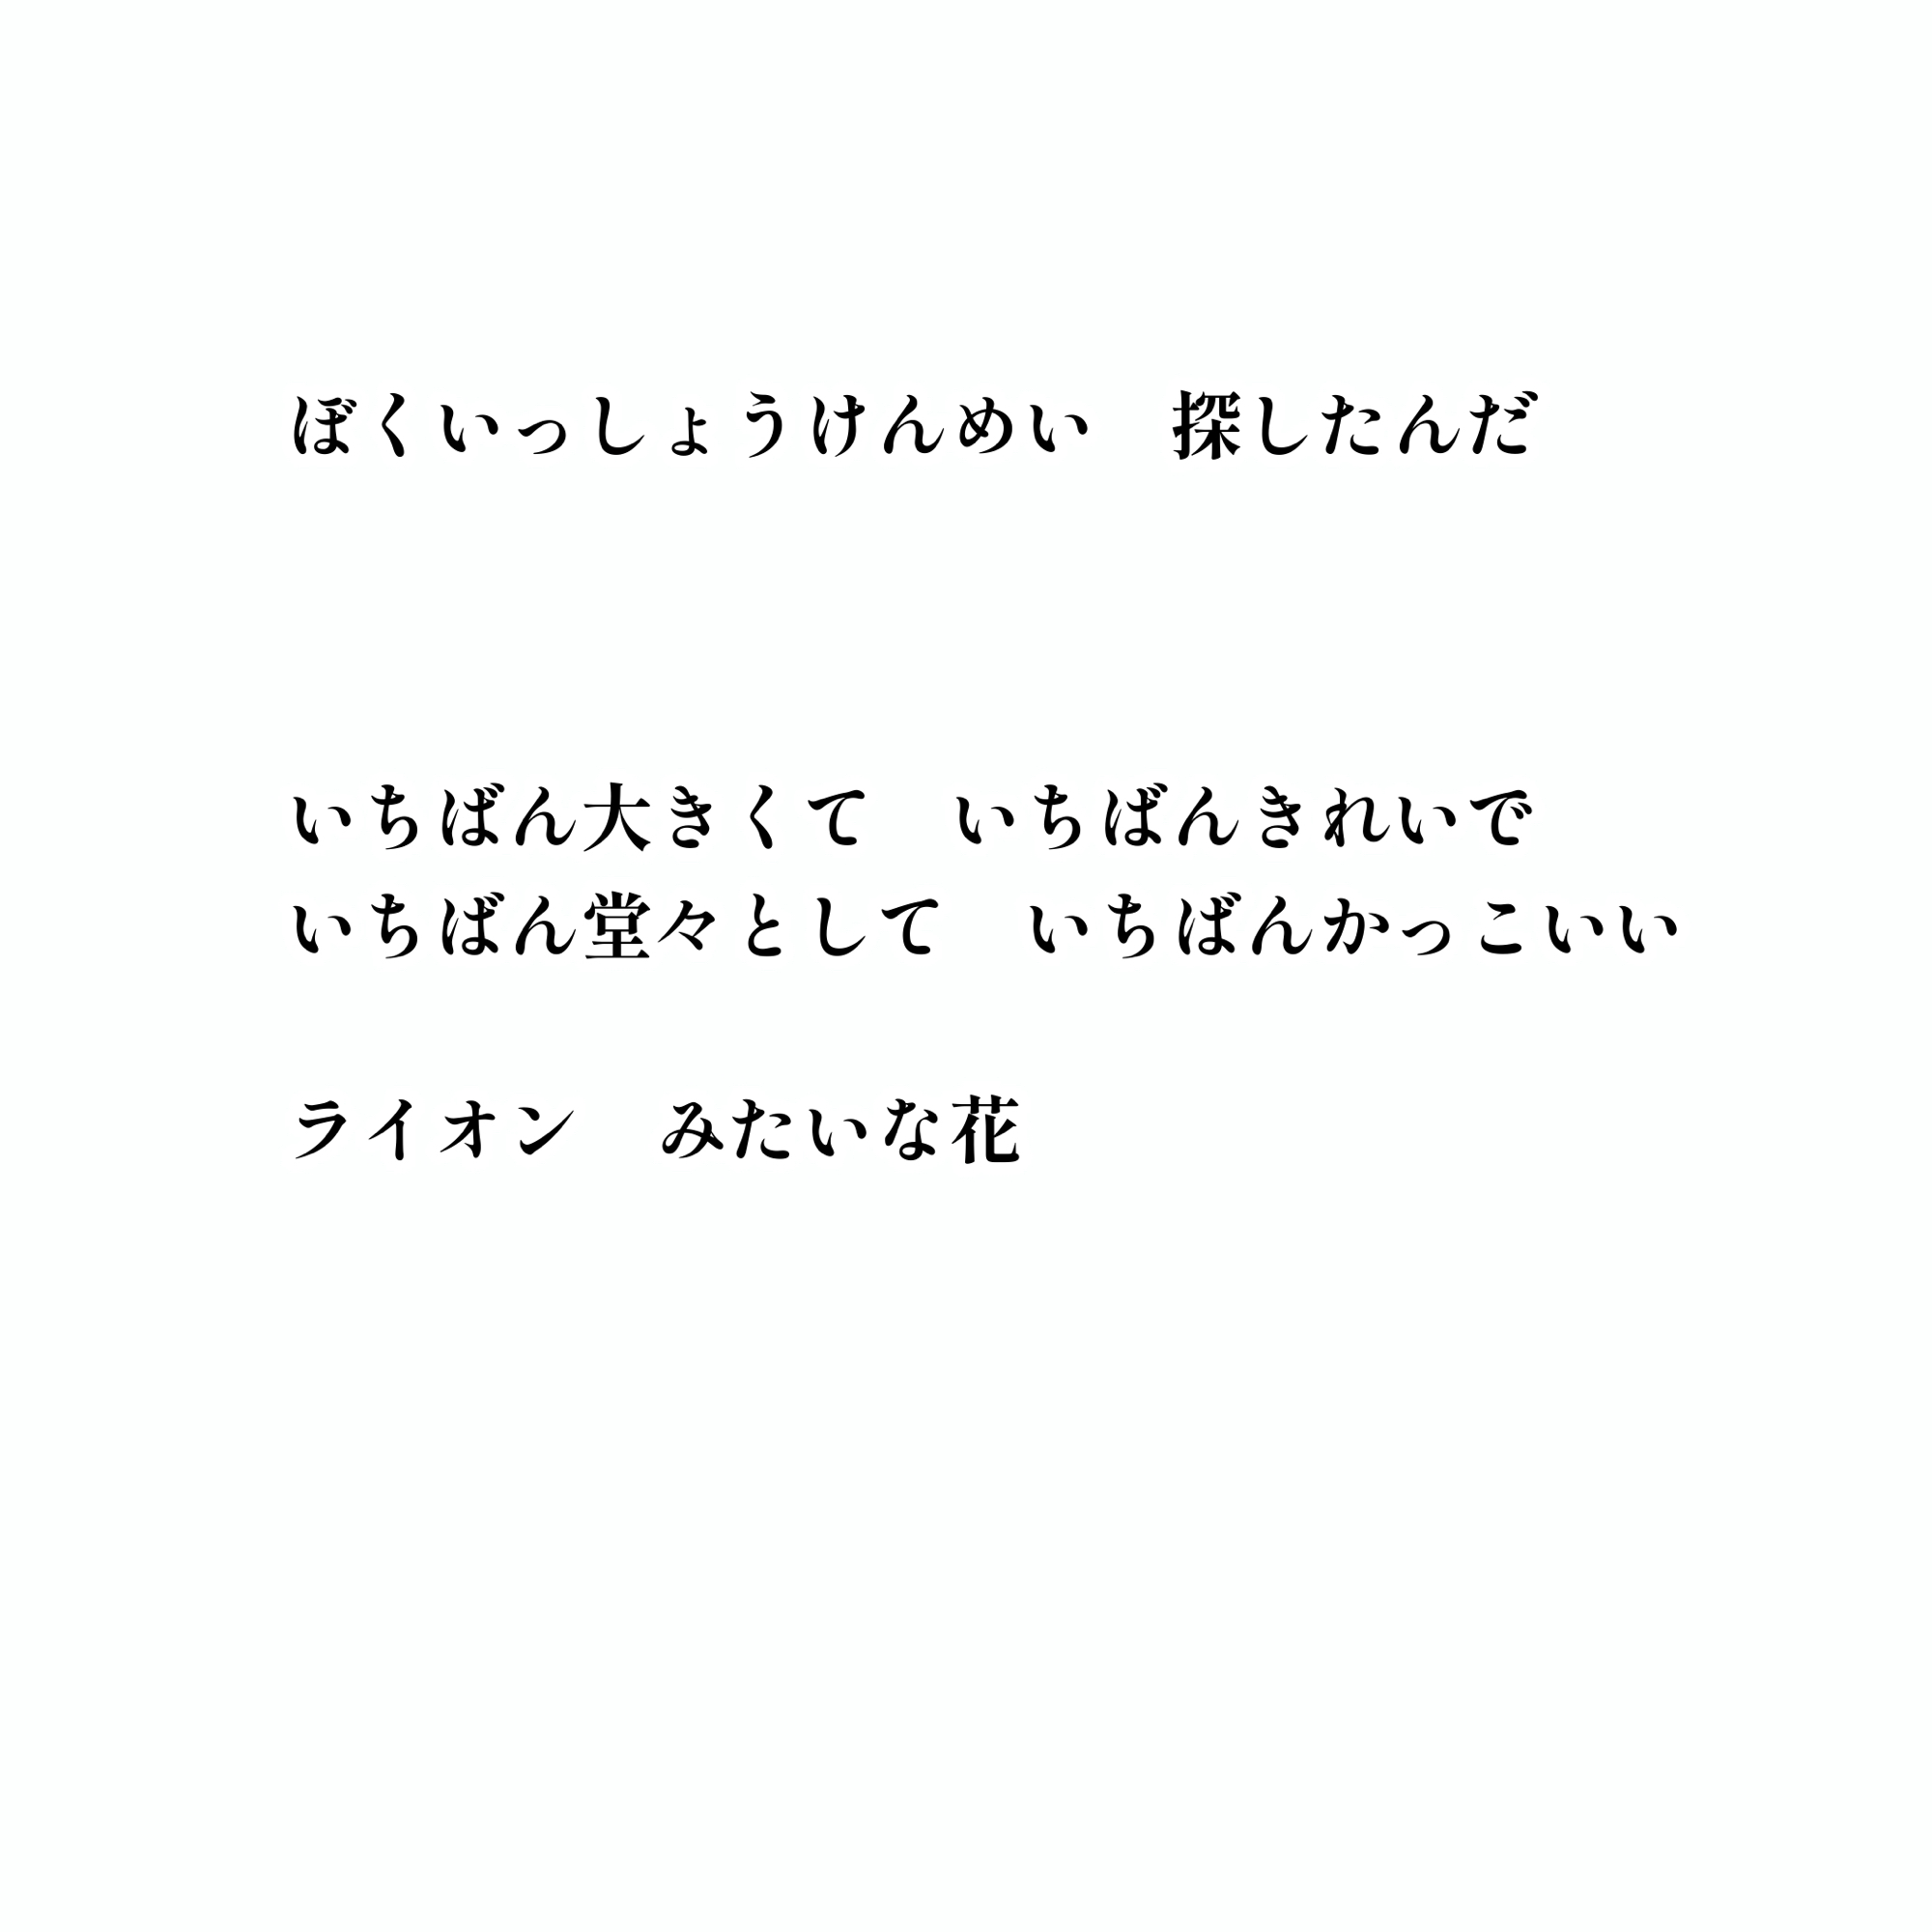 ぼくいっしょうけんめい　探したんだ
いちばん大きくて　いちばんきれいで
いちばん堂々として　いちばんかっこいい
ライオン　みたいな花